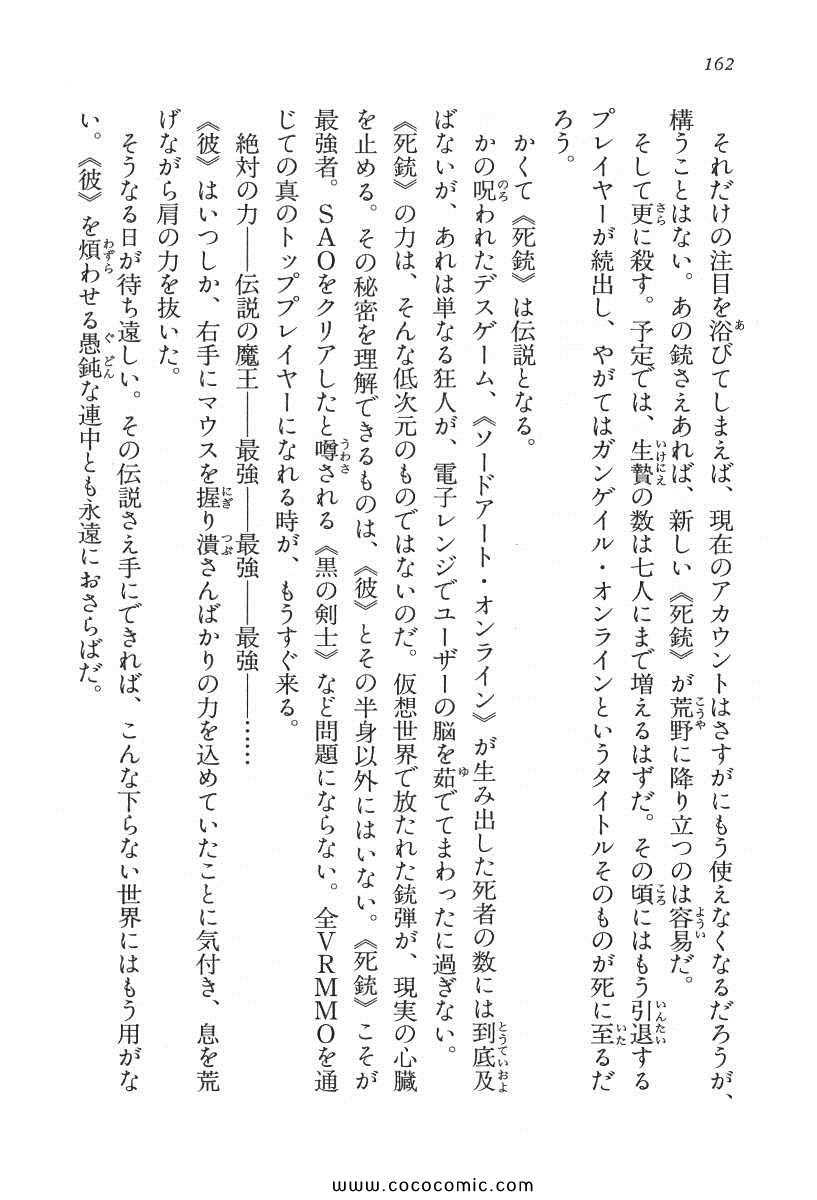 162
それだけの注目を浴びてしまえば、現在のアカウントはさすがにもう使えなくなるだろうが、
構うことはない。あの銃さえあれば、新しい《死銃》が荒野に降り立つのは容易だ。
そして更に殺す。予定では、生贄の数は七人にまで増えるはずだ。その頃にはもう引退する
プレイヤーが続出し、やがてはガンゲイル・オンラインというタイトルそのものが死に至るだ
ろう。
かくて《死銃》は伝説となる。
かの呪われたデスゲーム、《ソードアート・オンライン》が生み出した死者の数には到底及
ばないが、あれは単なる狂人が、電子レンジでユーザーの脳を茹でてまわったに過ぎない。
《死銃》の力は、そんな低次元のものではないのだ。仮想世界で放たれた銃弾が、現実の心臓
を止める。その秘密を理解できるものは、《彼》とその半身以外にはいない。《死銃》こそが
最強者。SAOをクリアしたと噂される《黒の剣士》など問題にならない。全VRMMOを通
じての真のトッププレイヤーになれる時が、もうすぐ来る。
絶対の力――伝説の魔王――最強――最強――最強――……
《彼》はいつしか、右手にマウスを握り潰さんばかりの力を込めていたことに気付き、息を荒
げながら肩の力を抜いた。
そうなる日が待ち遠しい。その伝説さえ手にできれば、こんな下らない世界にはもう用がな
い。《彼》を煩わせる愚鈍な連中とも永遠におさらばだ。
www.cococomic.com